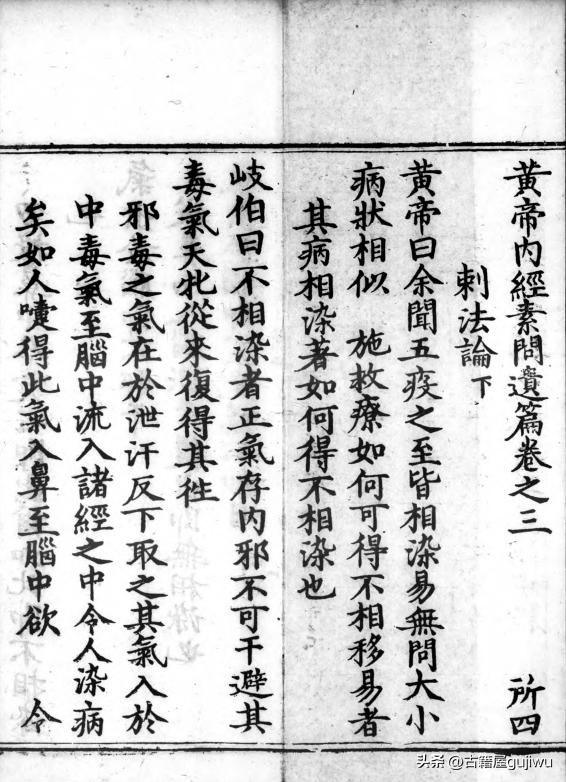 黃帝內經素問遺篇卷之三 所四
刺法論下
黃帝曰余聞五疫之至皆相染易無問大小
病狀相似 施救療如何可得不相移易者
其病相染著如何得不相染也
岐伯曰不相染者正氣存內邪不可干避其
毒氣天牝從來復得其徃
邪毒之氣在於泄汗反下取之其氣入於
中毒氣至腦中流入諸經之中令人染病
矣如人嚏得此氣入鼻至腦中欲 令
头条 @古籍屋gujiwu